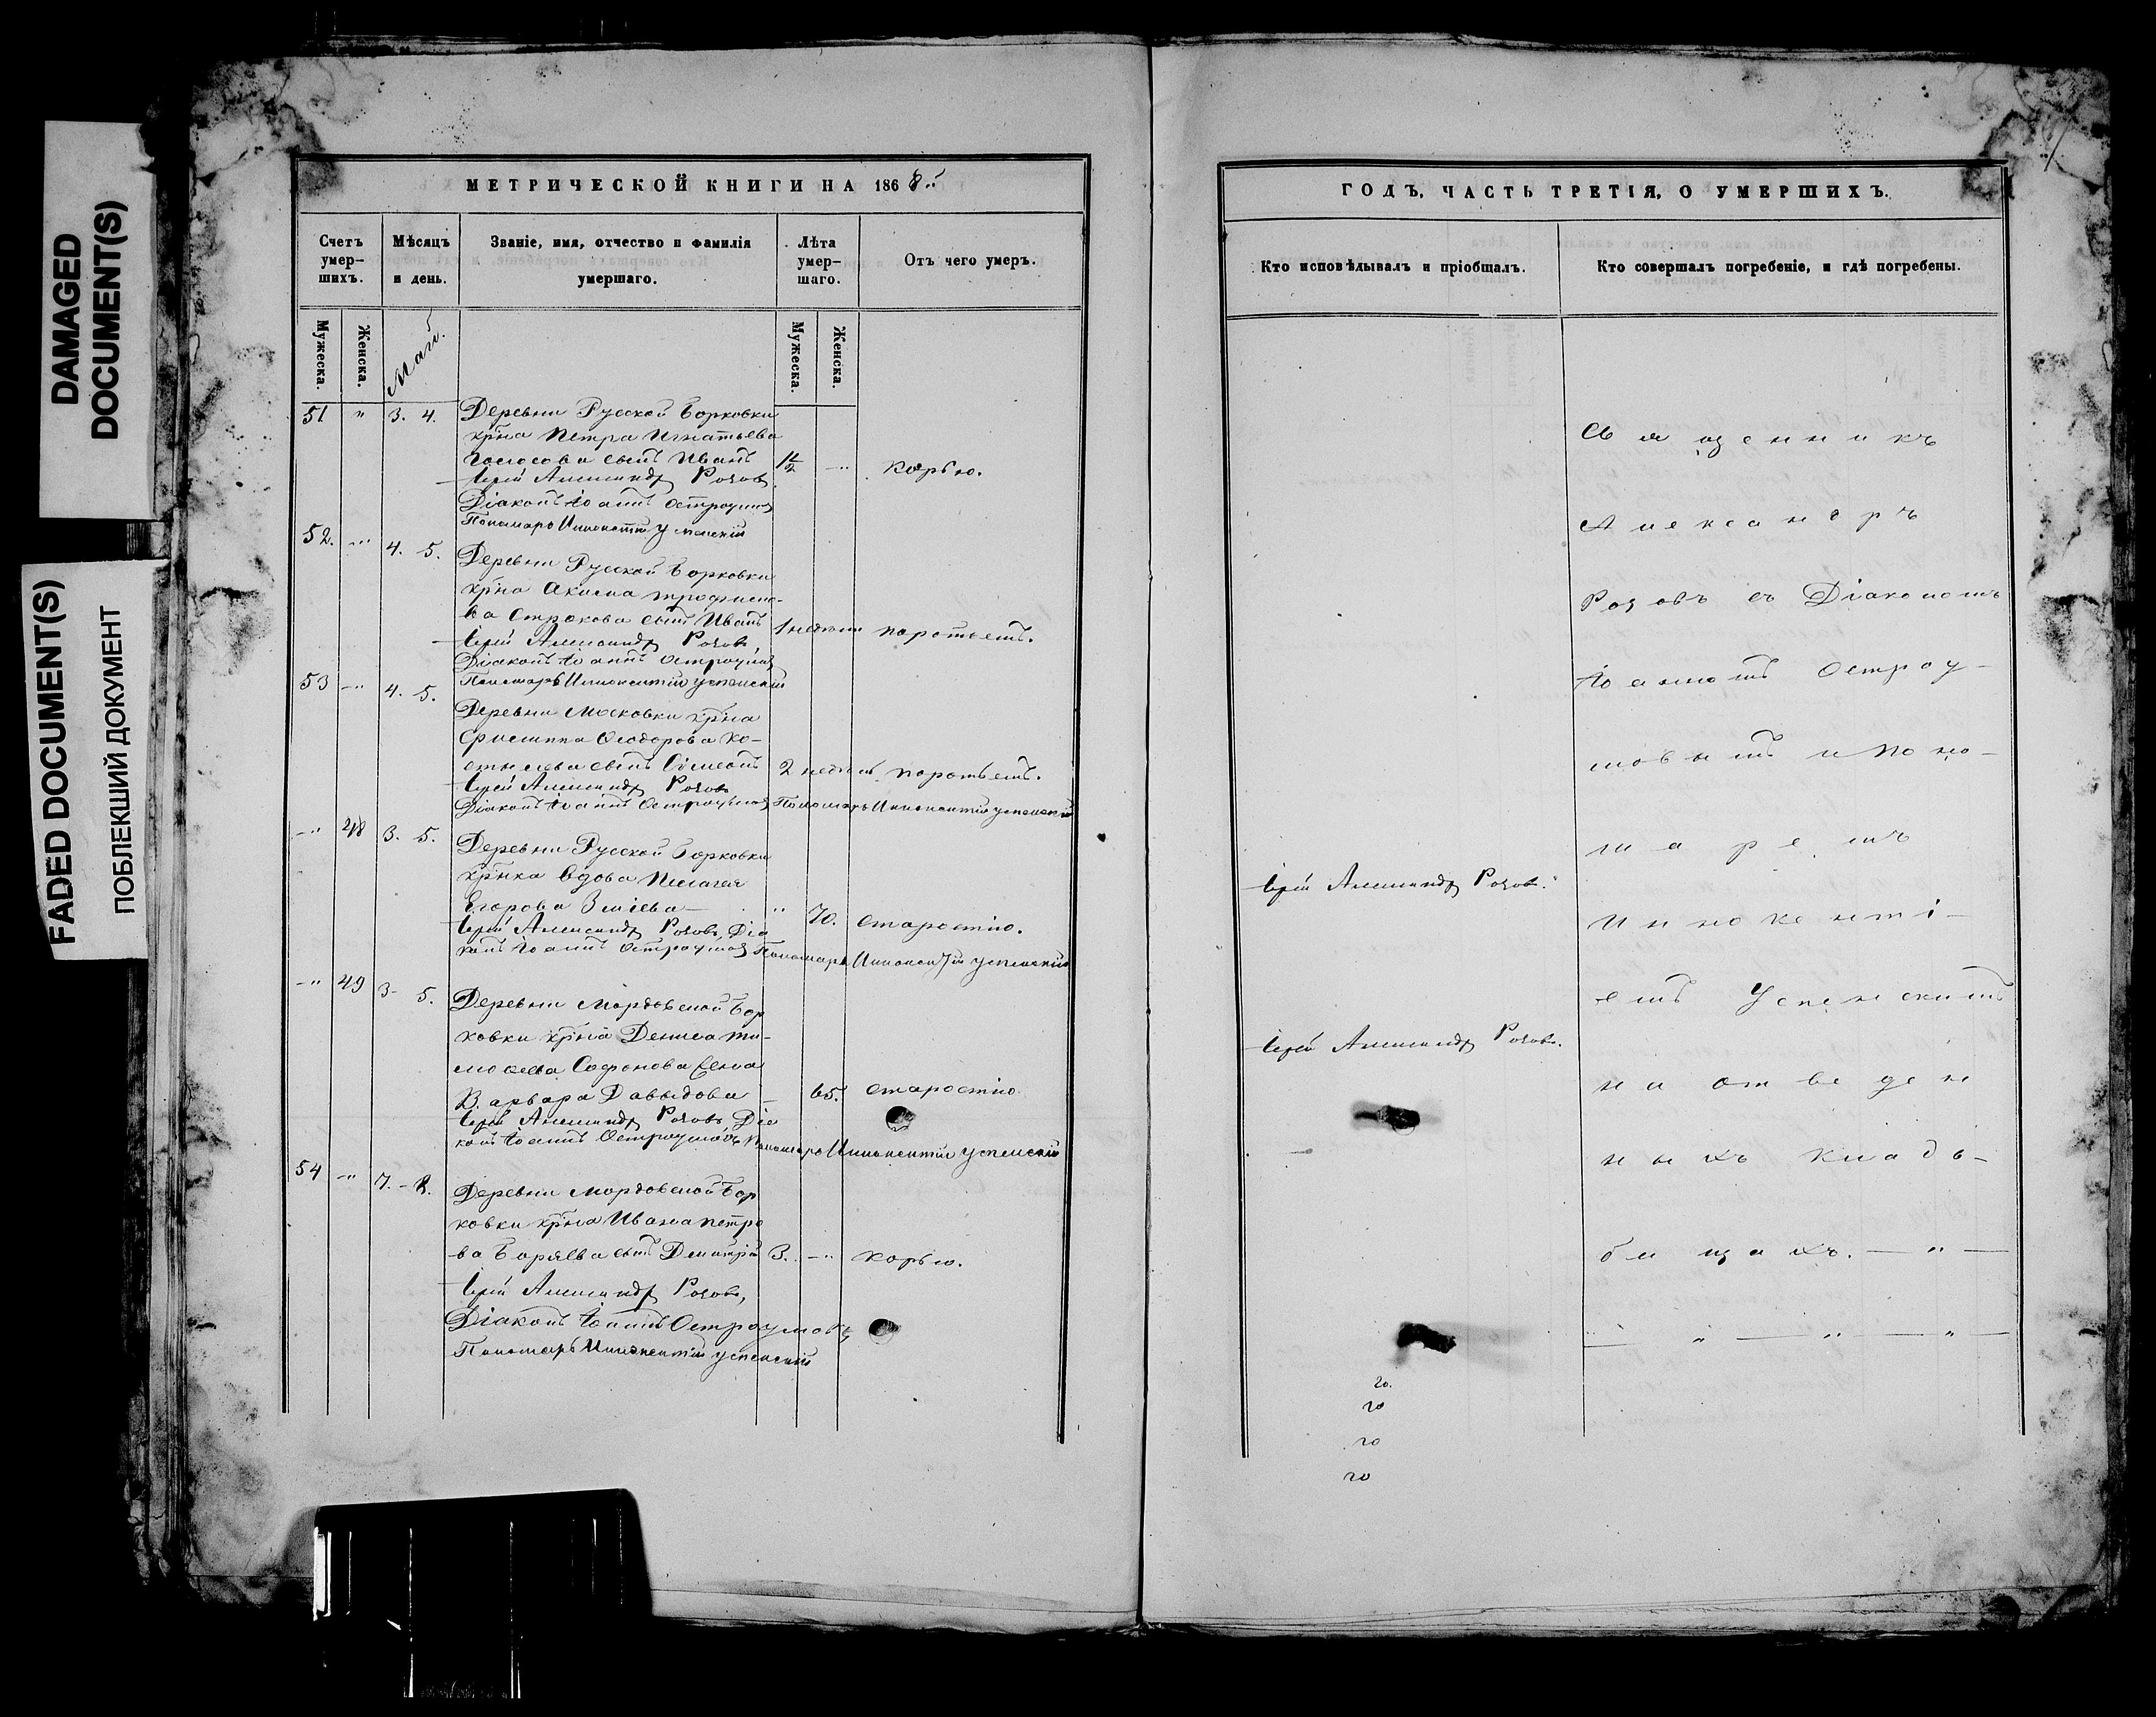 DAMAGED
DOCUMENT(S)
FADED DOCUMENT(S)
ПОБЛЕКШИЙ ДОКУМЕНТ
МЕТРИЧЕСКОЙ КНИГИ НА 1868й
Счетъ умер-шихъ.
Мѣсяцъ и день.
Званіе, имя, отчество и фамилія умершаго.
Лѣта умер-шаго.
Отъ чего умеръ.
Мужеска.
Женска.
Май.
Мужеска.
Женска.
51 " 3. 4. Деревни Русской Борковки
кр̅на Петра Игнатьева
сынъ Иванъ 1½ -" корью.
Іерей Александръ Розовъ
Діаконъ Іоаннъ Остроумовъ
Пономарь Иннокентій Успенскій
52. -" 4. 5. Деревни Русской Борковки
кр̅на Акима Трофимо-
ва Строкова сынъ Иванъ 1 недѣли поротьемъ.
Іерей Александръ Розовъ
Діаконъ Іоаннъ Остроумовъ
Пономарь Иннокентій Успенскій
53 -" 4. 5. Деревни Московки кр̅на
Филиппа Ѳеодорова Ко-
сынъ Симеонъ 2 недѣли поротьемъ.
Іерей Александръ Розовъ
Діаконъ Іоаннъ Остроумовъ Пономарь Иннокентій Успенскій
-" 48 3. 5. Деревни Русской Борковки
кр̅нка вдова Пелагея
Егорова Зміева " 70. старостію.
Іерей Александръ Розовъ, Діа
конъ Іоаннъ Остроумовъ Пономарь Иннокентій Успенскій
-" 49 3- 5. Деревни Мордовской Бор
ковки кр̅на Дениса Ти-
моѳеева Софонова жена
Варвара Давыдова - 65. старостію.
Іерей Александръ Розовъ, Діа
конъ Іоаннъ Остроумовъ Пономарь Иннокентій Успенскій
54 -" 7.-8. Деревни Мордовской Бор
ковки кр̅на Ивана Петро
ва Боряева сынъ Димитрій 3. -" корью.
Іерей Александръ Розовъ,
Діаконъ Іоаннъ Остроумовъ
Пономарь Иннокентій Успенскій
ГОДЪ, ЧАСТЬ ТРЕТІЯ, О УМЕРШИХЪ.
Кто исповѣдывалъ и пріобщалъ.
Кто совершалъ погребеніе, и гдѣ погребены.
Іерей Александръ Розовъ.
Іерей Александръ Розовъ.
Священникъ
Александръ
Розовъ съ Діакономъ
Іоанномъ Остроу-
мовымъ и Поно-
маремъ
Иннокенті-
емъ Успенскимъ
на отведен
ныхъ кладь-
бищахъ. — " —
— " — " — " —